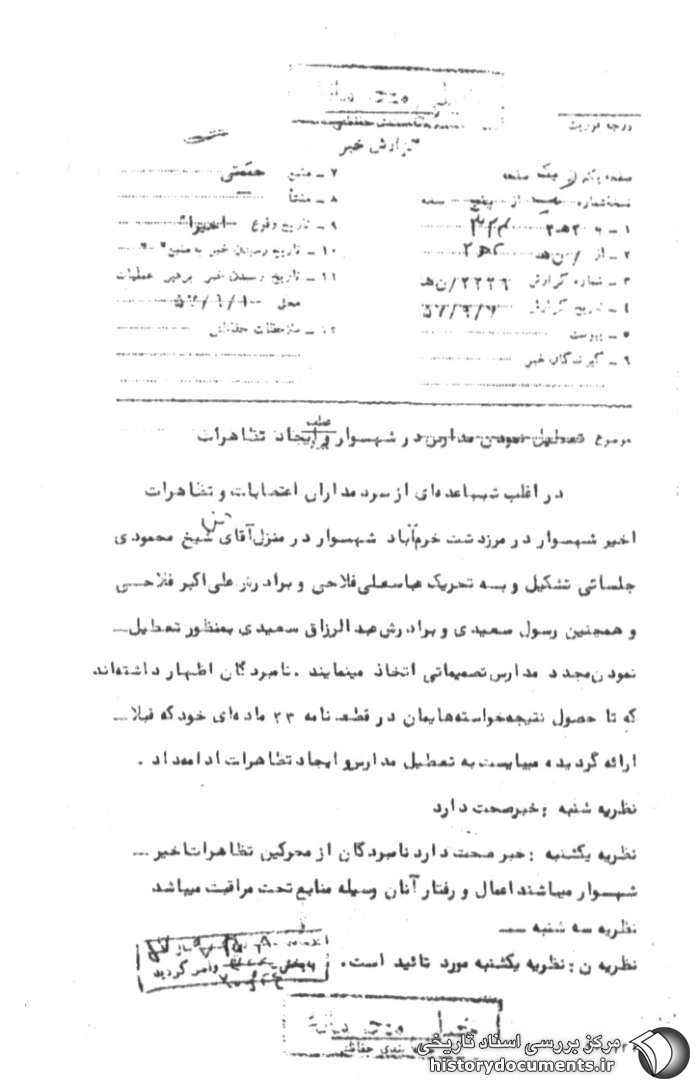 خیلی محرمانه
درجه فوریت
گزارش خبر
صفحه یکم از یک صفحه
نسخه شماره از پنج نسخه
۱ ـ به ۳۲۲
۲ ـ از ۲ ه‍
۳ ـ شماره گزارش ۲۲۲۹/ن ه‍
۴ ـ تاریخ گزارش ۵۷/۹/۶
۵ ـ پیوست
۶ ـ گیرندگان خبر
۷ ـ منبع
۸ ـ منشأ
۹ ـ تاریخ وقوع اخیراً
۱۰ ـ تاریخ رسیدن خبر به منبع
۱۱ ـ تاریخ رسیدن خبر برهبر عملیات
محل
۱۲ ـ ملاحظات حفاظتی
موضوع تعطیل نمودن مدارس در شهسوار و ایجاد تظاهرات
در اغلب شبها عده‌ای از سردمداران اعتصابات و تظاهرات
اخیر شهسوار در مرزدشت خرم‌آباد شهسوار در منزل آقای شیخ محمودی
جلساتی تشکیل و بـه تحریک عباسعلی فلاحی و برادرش علی‌اکبر فلاحـی
و همچنین رسول سعیدی و برادرش عبدالرزاق سعیدی بمنظور تعطیلـ
نمودن مجدد مدارس تصمیماتی اتخاذ مینمایند . نامبردگان اظهار داشته‌اند
که تا حصول نتیجه خواسته‌هایمان در قطعنامه ۲۳ ماده‌ای خود که قبلاـ
ارائه گردیده میبایست به تعطیل مدارس و ایجاد تظاهرات ادامه داد .
نظریه شنبه : خبر صحت دارد
نظریه یکشنبه : خبر صحت دارد نامبردگان از محرکین تظاهرات اخیر ـ
شهسوار میباشند اعمال و رفتار آنان وسیله منابع تحت مراقبت میباشد
نظریه سه شنبه ـ
نظریه ن : نظریه یکشنبه مورد تائید است .
به بخش وامر گردید
خیلی محرمانه
بندی حفاظتی
مرکز بررسی اسناد تاریخی
historydocuments.ir